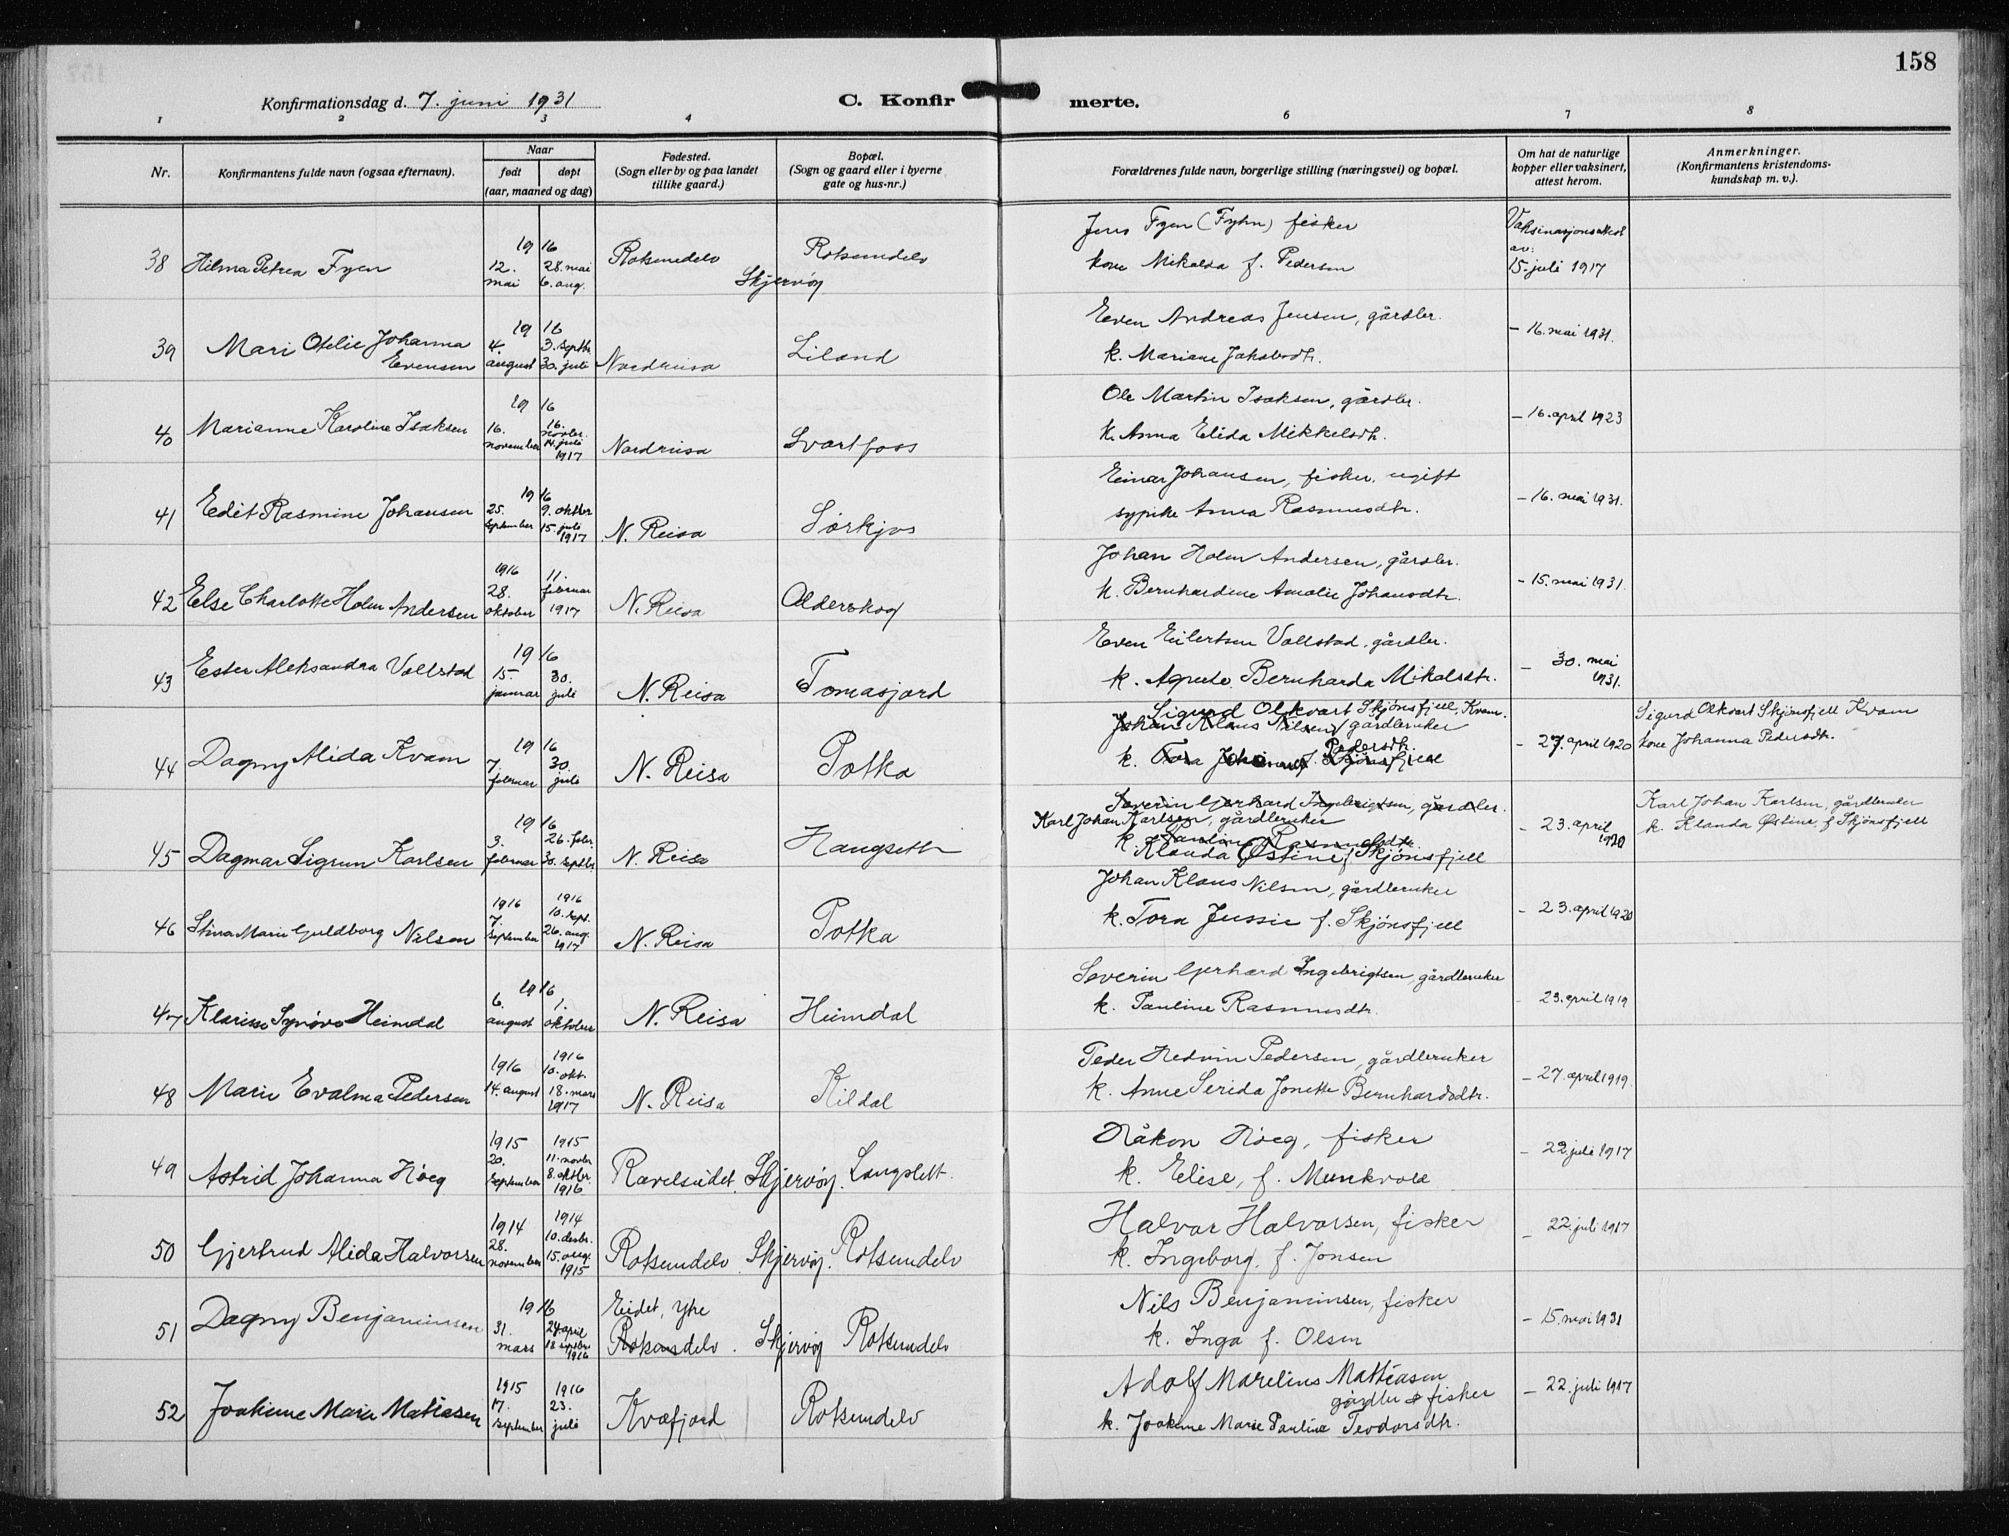 158
Konfirmationsdag d. 7. juni 1931
C. Konfir merte.
1 2 3 4 6 7 8
Nr.
Konfirmantens fulde navn (ogsaa efternavn).
Naar
født
døpt
(aar, maaned og dag)
Fødested.
(Sogn eller by og paa landet
tillike gaard.)
Bopæl.
(Sogn og gaard eller i byerne
gate og hus-nr.)
Forældrenes fulde navn, borgerlige stilling (næringsvei) og bopæl.
Om hat de naturlige
kopper eller vaksinert,
attest herom.
Anmerkninger.
(Konfirmantens kristendoms-
kundskap m. v.).
38 Hilma Petrea Fyen
19 16
12. mai
28. mai
6. aug.
Rotsundelv Skjervøy Rotsundelv
Jens Fyen (Fyhn) fisker
kone Mikalda f. Pedersen
av:
15. juli 1917
39 Mari Otelie Johanna
Evensen
19 16
4. august
3. septbr.
30. juli
Nordreisa
Liland
Even Andreas Jensen, gårdbr.
k. Mariane Jakobsdtr.
- 16. mai 1931.
40 Marianne Karoline Isaksen
19 16
16. november
16. novbr.
14. juli
1917
Nordreisa
Svartfoss
Ole Martin Isaksen, gårdbr.
k. Anna Elida Mikkelsdtr.
- 16. april 1923
41 Edit Rasmine Johansen
19 16
25. september
9. oktbr
15. juli
1917
N. Reisa
Sørkjos
Einar Johansen, fisker, ugift
sypike Anna Rasmusdtr.
- 16. mai 1931.
42 Else Charlotte Holm Andersen
1916
28. oktober
11. februar
1917
N. Reisa
Olderskog
Johan Holm Andersen, gårdbr.
k. Bernhardine Amalie Johansdtr.
- 15. mai 1931.
43 Ester Aleksandra Vallstad
19 16
15. januar
30. juli
N. Reisa
Tomasjord
Even Eilertsen Vallstad, gårdbr.
k. Agnete Bernharda Mikalsdtr.
- 30. mai
1931.
44 Dagny Alida Kvam
19 16
7. februar
30. juli
N. Reisa
Potka
Sigurd Olkvart Skjønsfjell Kvam.
Johan Klaus Nilsen, gårdbruker
Pedersdtr.
k. Tora Johanna f. Skjønsfjell
- 27. april 1920
Sigurd Olkvart Skjønsfjell Kvam
kone Johanna Pedersdtr.
45 Dagmar Sigrun Karlsen
19 16
3. februar
26. febr.
30. septbr.
N. Reisa
Haugseth
Severin Gerhard Ingebrigtsen, gårdbr.
Karl Johan Karlsen, gårdbruker
k. Pauline Rasmusdtr.
Klanda Østine f. Skjønsfjell
- 23. april
1920
Karl Johan Karlsen, gårdbruker
k. Klanda Østine, f. Skjønsfjell
46 Stina Marie Guldborg Nilsen
1916
7. september
1916
10. sept.
26. aug.
1917
N. Reisa
Potka
Johan Klaus Nilsen, gårdbruker
k. Tora Jussie f. Skjønsfjell
- 23. april 1920
47 Klarisse Synøve Heimdal
19 16
6. august
1. oktober
N. Reisa
Heimdal
Severin Gerhard Ingebrigtsen, gårdbruker
k. Pauline Rasmusdtr.
- 23. april 1919
48 Marie Evalma Pedersen
1916
14. august
1916
10. okt.
18. mars
1917
N. Reisa
Kildal
Peder Hedvin Pedersen, gårdbruker
k. Anne Serida Jonette Bernhardsdtr.
- 27. april 1919.
49 Astrid Johanna Høeg
1915
20. september
1915
11. novbr
8. oktbr.
1916
Ravelseidet. Skjervøy. Langslett.
Håkon Höeg, fisker
k. Elise, f. Munkvold
- 22 juli 1917
50 Gjertrud Alida Halvorsen
1914
28. november
1914
10. desbr.
15. aug.
1915
Rotsundelv. Skjervøy. Rotsundelv
Halvor Halvorsen, fisker
k. Ingeborg, f. Jonsen
- 22. juli 1917
51 Dagny Benjaminsen
19 16
31. mars
24 april
18 septbr
1916
Eidet, Ytre
Rotsundelv. Skjervøy Rotsundelv
Nils Benjaminsen, fisker
k. Inga f. Olsen
- 15. mai 1931
52 Joakime Marie Matiasen
1915
17. september
1916
23. juli
Kvæfjord
Rotsundelv
Adolf Marelius Mattiasen
gårdbr & fisker
k. Joakime Marie Pauline Teodorsdtr.
- 22. juli 1917